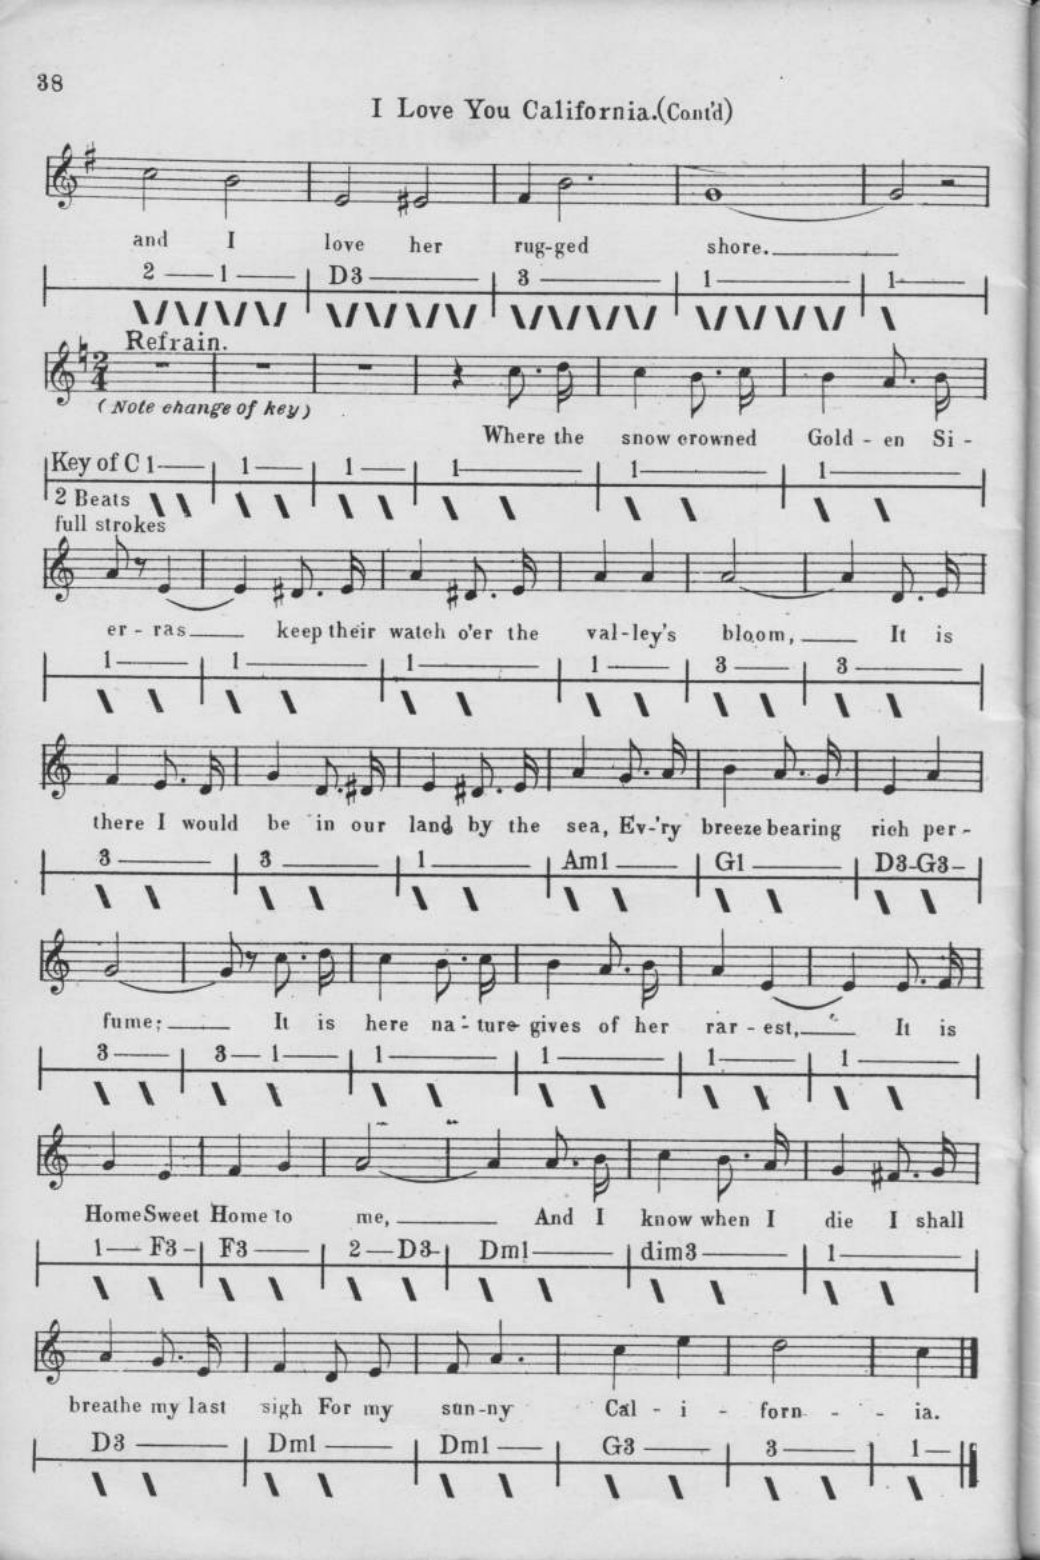 38
I Love You California.(Cont'd)
and I love her rug-ged shore.
2 1 D3 3 1 1
Refrain.
2
4
(Note change of key)
Where the snow crowned Gold - en Si -
Key of C 1 1 1 1 1 1
2 Beats
full strokes
er - ras keep their watch o'er the val-ley's bloom, It is
1 1 1 1 3 3
there I would be in our land by the sea, Ev-'ry breeze bearing rich per-
3 3 1 Am1 G1 D3-G3-
fume; It is here na - ture gives of her rar - est, It is
3 3 1 1 1 1 1
Home Sweet Home to me, And I know when I die I shall
1 F3 F3 2 D3 Dm1 dim3 1
breathe my last sigh For my sun-ny Cal - i - forn - - ia.
D3 Dm1 Dm1 G3 3 1